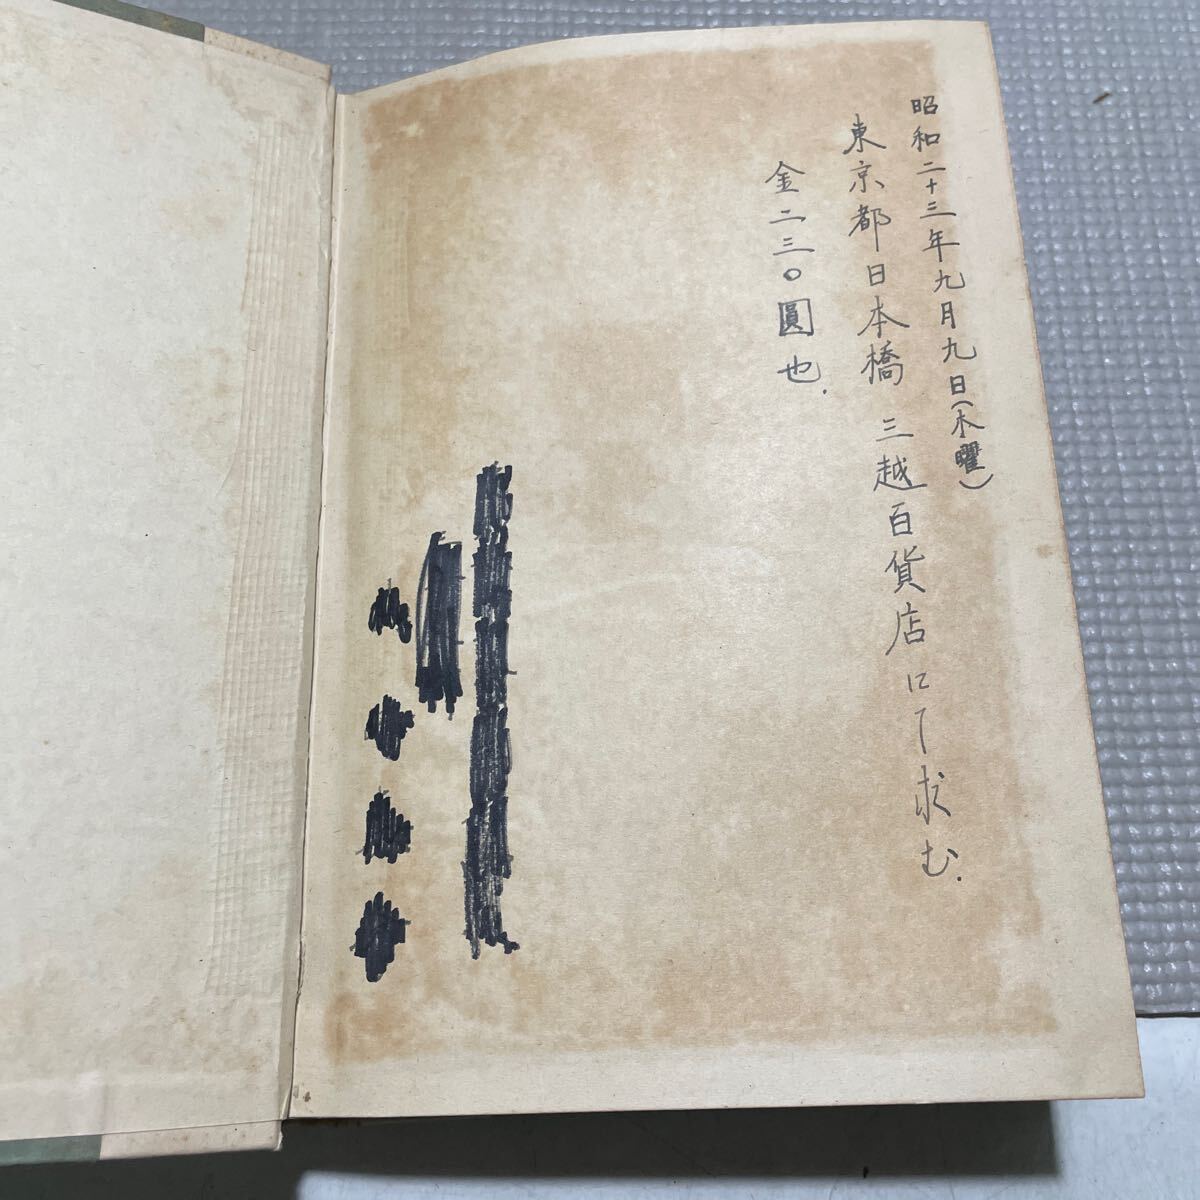 昭和二十三年九月九日(木曜)
東京都日本橋 三越百貨店にて求む.
金二三〇圓也.